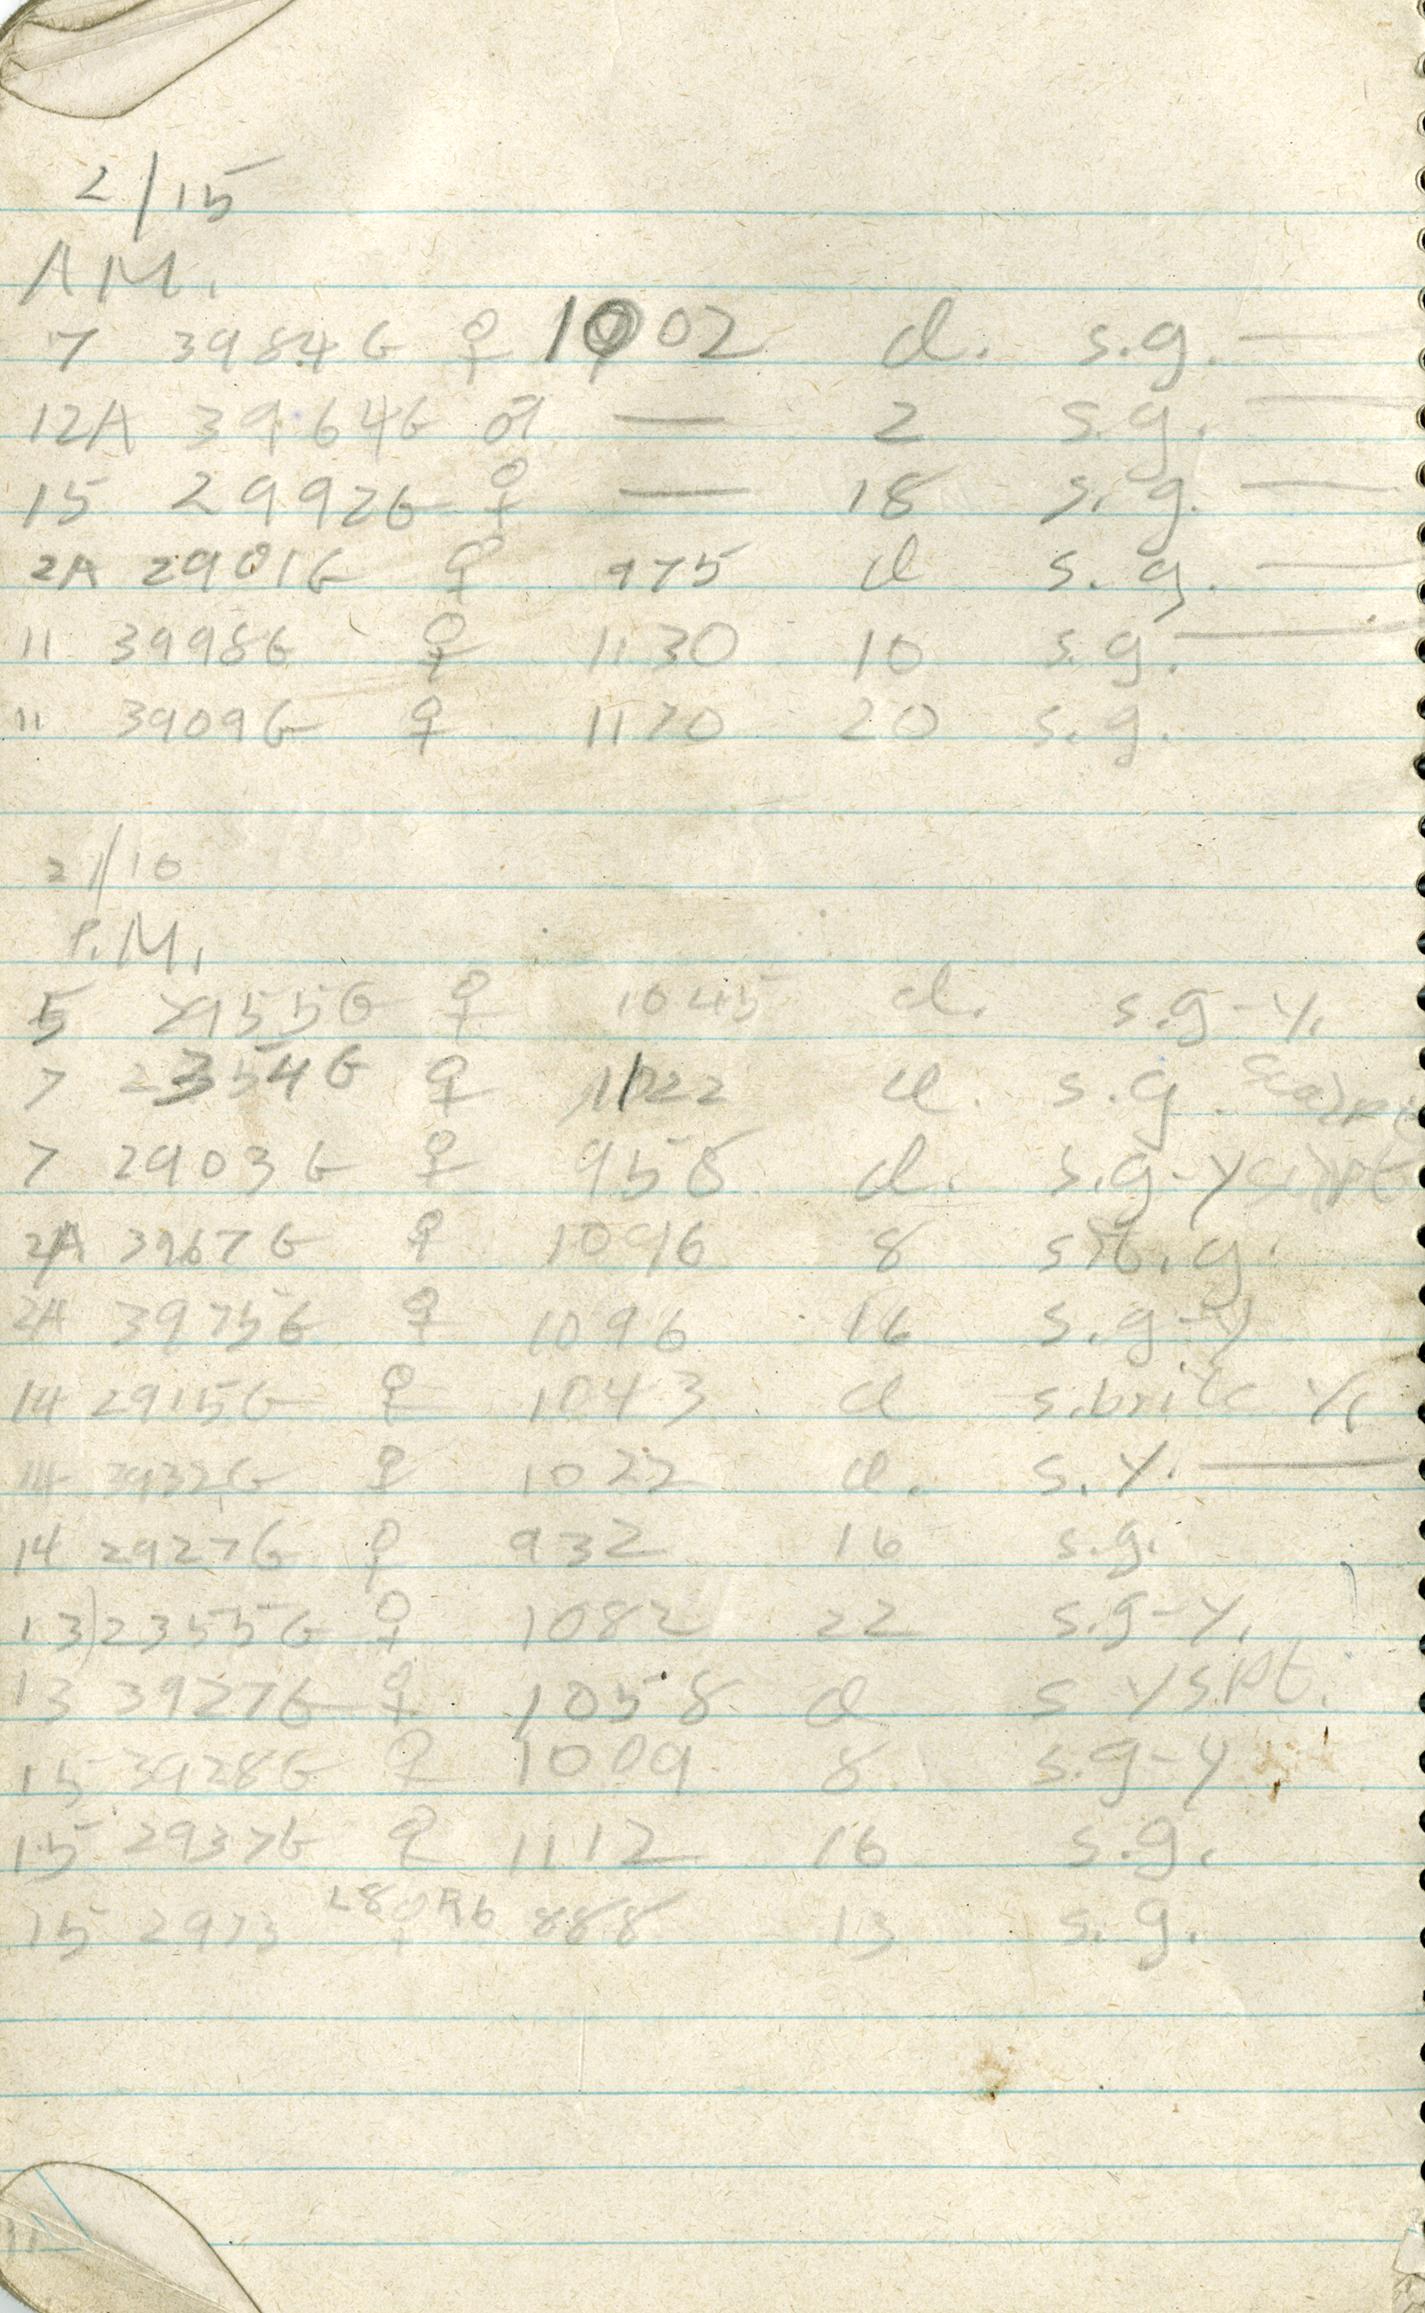 2/15
A.M.
7 3984G ♀ 1002 d. s.g. —
12A 3964G ♂ — 2 s.g. —
15 2992G ♀ — 18 s.g. —
2A 2901G ♀ 975 d s.g. —
11 3998G ♀ 1130 10 s.g. —
11 3909G ♀ 1170 20 s.g.
2/10
P.M.
5 2955G ♀ 1045 d. s.g-y.
7 2354G ♀ 1122 d. s.g.
7 2903G ♀ 958 d. s.g-y
2A 3967G ♀ 1096 8 g.
2A 3975G ♀ 1096 16 s.g-y
14 2915G ♀ 1043 d y.
14 2932G ♀ 1022 d. s.y. —
14 2927G ♀ 932 16 s.g.
13 2355G ♀ 1082 22 s.g-y.
13 3927G ♀ 1058 d s y spt.
15 3928G ♀ 1009 8 s.g-y
15 2937G ♀ 1112 16 s.g.
15 2973 ♀ 888 13 s.g.
11